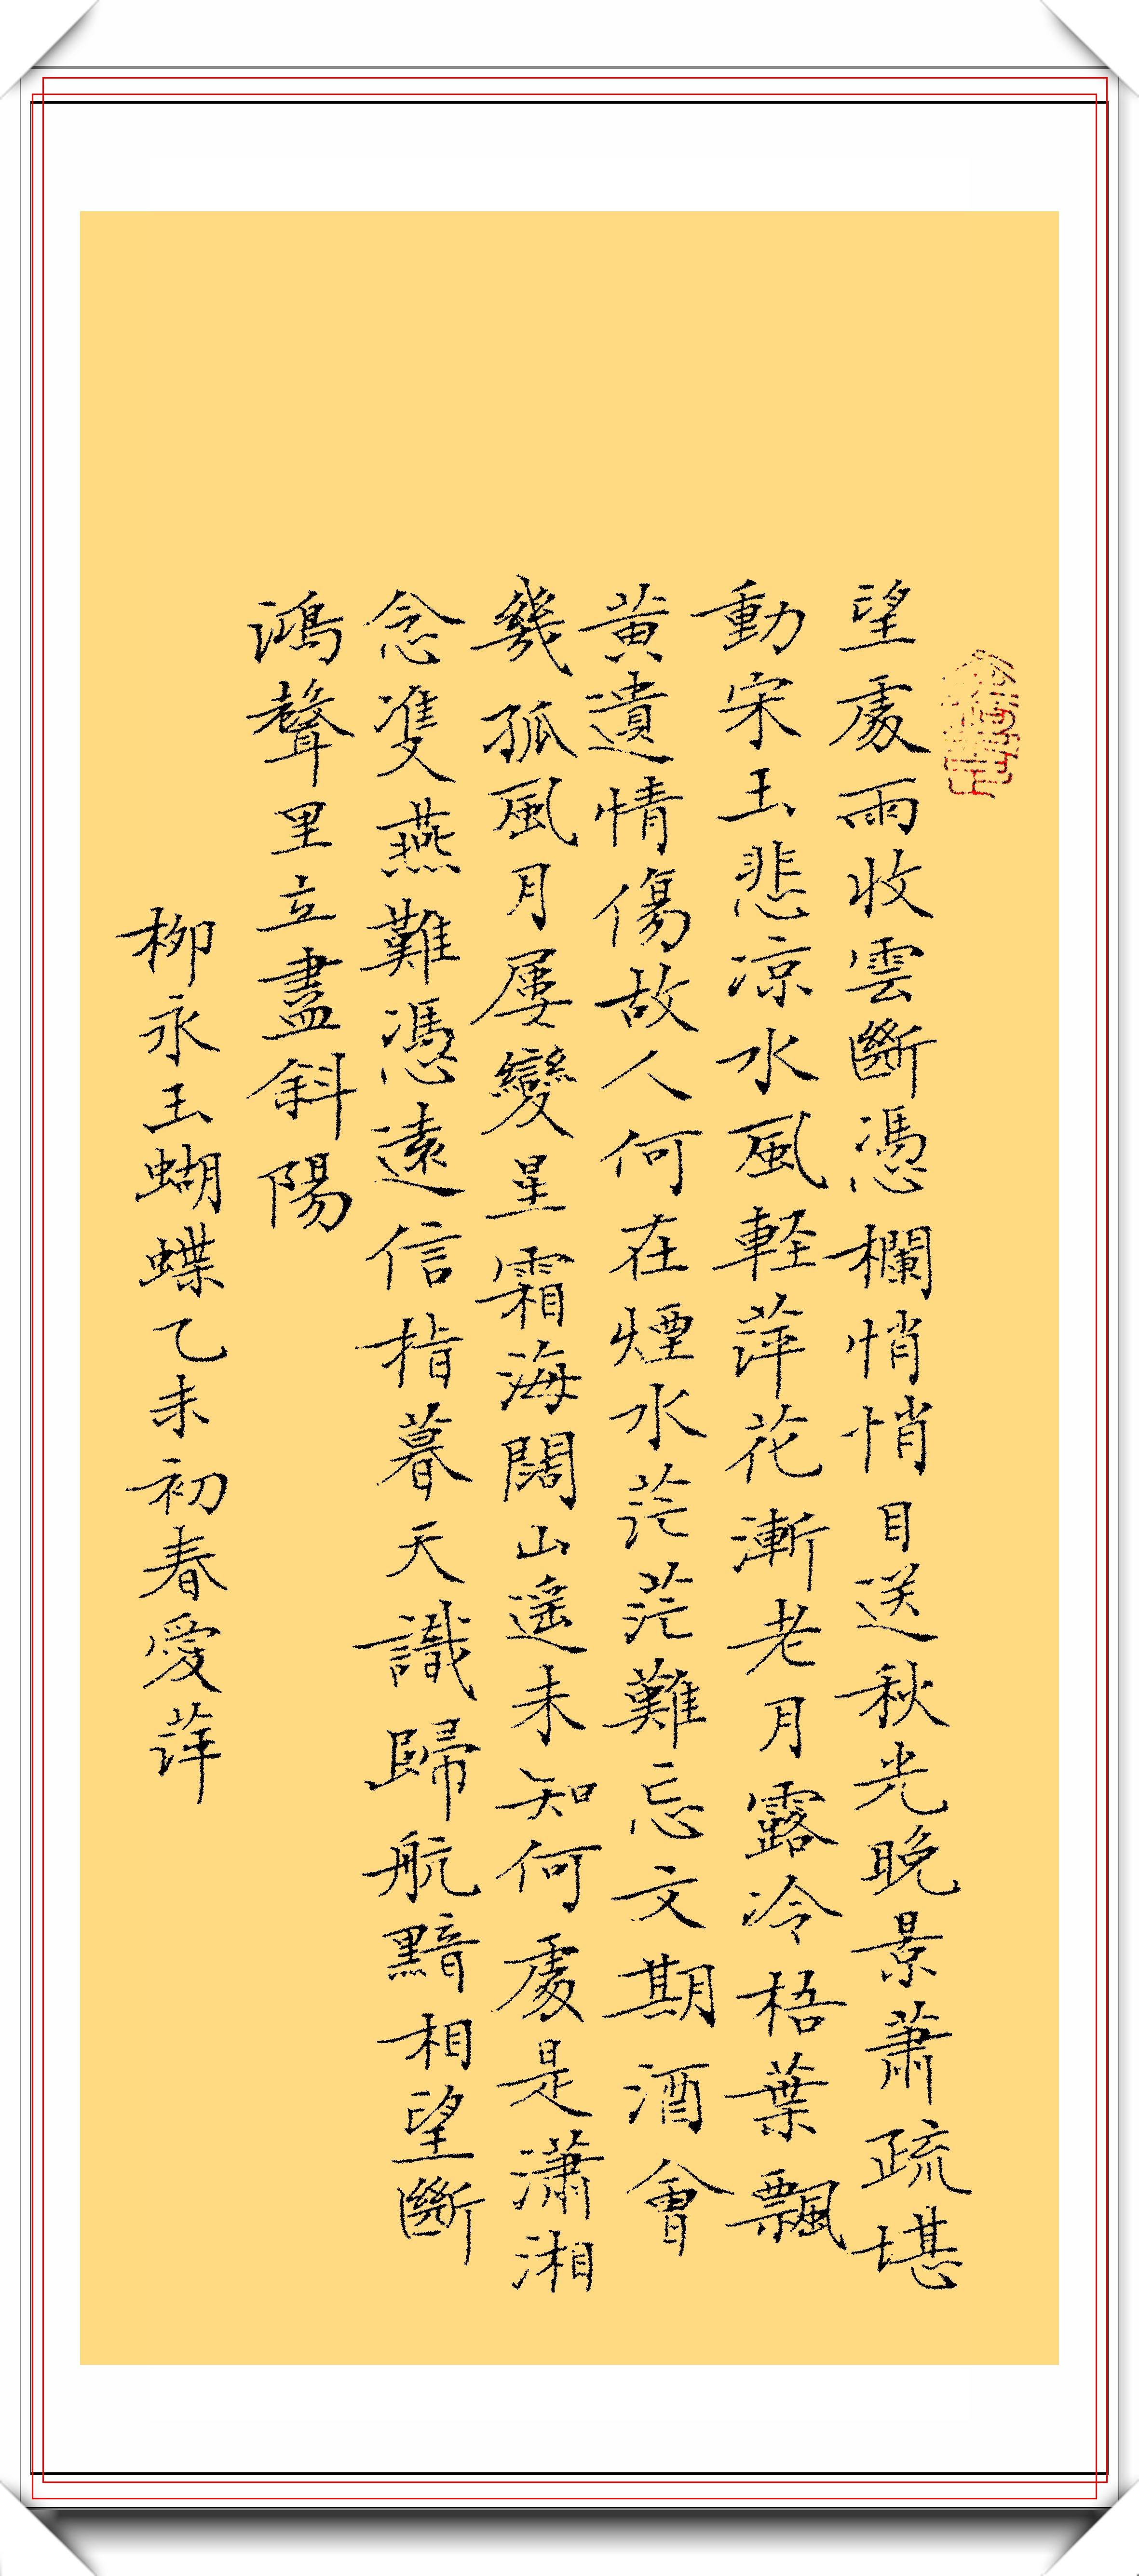 望處雨收雲斷憑欄悄悄目送秋光晚景蕭疏堪
動宋玉悲涼水風軽萍花漸老月露冷梧葉飄
黄遺情傷故人何在煙水茫茫難忘文期酒會
幾孤風月屢變星霜海闊山遥未知何處是瀟湘
念雙燕難憑遠信指暮天識歸航黯相望斷
鴻聲里立盡斜陽
柳永玉蝴蝶乙未初春愛萍